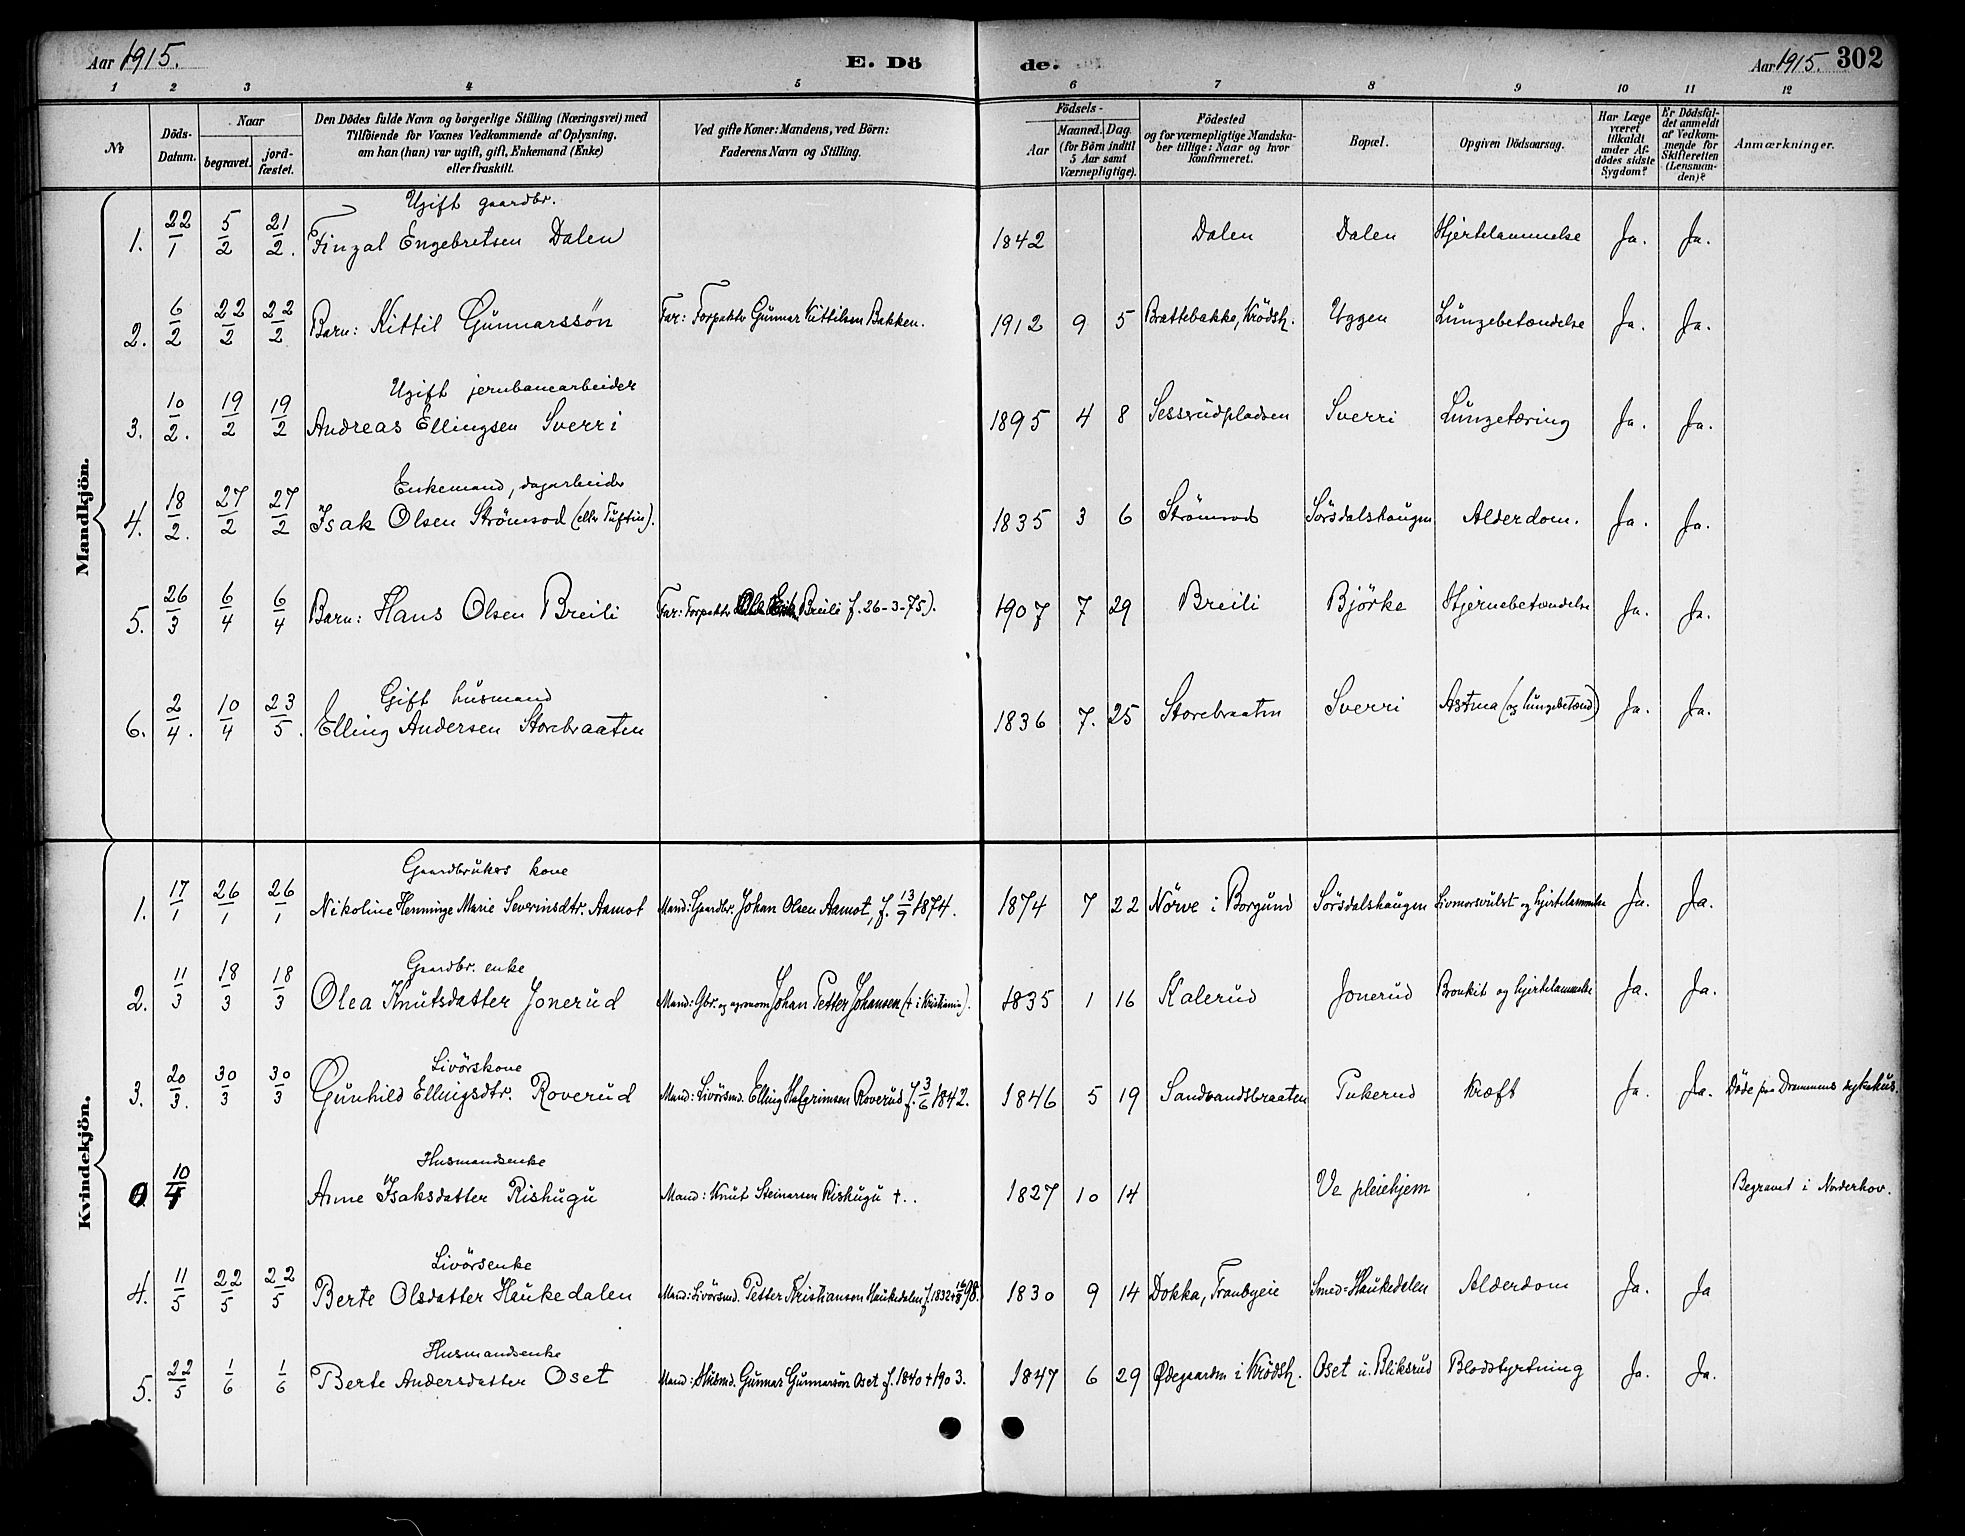 Aar 1915. E. Dö de. Aar 1915. 302
1 2 3 4 5 6 7 8 9 10 11 12
No Döds-Datum. Naar begravet. jordfæstet. Den Dödes fulde Navn og borgerlige Stilling (Næringsvei) med Tilföiende for Voxnes Vedkommende af Oplysning, om han (hun) var ugift, gift, Enkemand (Enke) eller fraskilt. Ved gifte Koner: Mandens, ved Börn: Faderens Navn og Stilling. Födsels- Aar Maaned. Dag. (for Börn indtil 5 Aar samt Værnepligtige). Födested og for værnepligtige Mandskaber tillige: Naar og hvor konfirmeret. Bopæl. Opgiven Dödsaarsag. Har Læge været tilkaldt under Afdödes sidste Sygdom? Er Dödsfaldet anmeldt af Vedkommende for Skifteretten (Lensmanden)? Anmærkninger.
Mandkjön.
Ugift gaardbr.
1. 22/1 5/2 21/2. Fingal Engebretsen Dalen 1842 Dalen Dalen Hjertelammelse Ja. Ja.
2. 6/2 22/2 22/2 Barn: Kittil Gunnarssön Far: Forpakter Gunnar Kittilsen Bakken. 1912 9 5 Brattebakke, Krödsh. Uggen Lungebetændelse Ja. Ja.
Ugift jernbanearbeider
3. 10/2. 19/2 19/2 Andreas Ellingsen Sverri 1895 4 8 Sessrudpladsen Sverri Lungetæring Ja. Ja.
Enkemand, dagarbeider
4. 18/2. 27/2 27/2 Isak Olsen Strömsod (eller Tuftin). 1835 3 6 Strömsod Sörsdalshaugen Alderdom. Ja. Ja.
5. 26/3 6/4 6/4 Barn: Hans Olsen Breili Far: Forpakter Breili f. 26-3-75). 1907 7 29 Breili Björke Hjernebetændelse Ja. Ja.
Gift husmand
6. 2/4. 10/4 23/5. Elling Andersen Storebraaten 1836 7. 25 Storebraaten Sverri Astma (og lungebetænd) Ja. Ja.
Kvindekjön.
Gaardbrukers kone
1. 17/1 26/1 26/1 Nikoline Henninge Marie Severinsdtr. Aamot Mand: Gaardbr. Johan Olsen Aamot, f. 13/9 1874. 1874 7 22 Nörve i Borgund Sörsdalshaugen Livmorsvulst og hjertelammelse Ja. Ja.
Gaardbr. enke
2. 11/3 18/3 18/3 Olea Knutsdatter Jonerud Mand: Gbr. og agronom Johan Petter Johansen († i Kristiania). 1835 1 16 Kalerud Jonerud Bronkit og hjertelammelse Ja. Ja.
Livörskone
3. 20/3. 30/3 30/3 Gunhild Ellingsdtr. Roverud Mand: Livörsmd. Elling Halgrimsen Roverud f. 3/6 1842. 1846 5 19 Sandvandsbraaten Tukerud Kræft Ja. Ja. Döde paa Drammens sykehus.
Husmandsenke
0 10/4 Anne Isaksdatter Rishugu Mand: Knut Steinarsen Rishugu †.. 1827 10 14 Ve pleiehjem Begravet i Norderhov.
Livörsenke
4. 11/5 22/5 22/5 Berte Olsdatter Haukedalen Mand: Livörsmd. Petter Kristiansen Haukedalen f. 1832 † 98. 1830 9 14 Dokka, Tranbygeie Smed-Haukedalen Alderdom Ja. Ja
Husmandsenke
5. 22/5 1/6 1/6 Berte Andersdatter Oset Mand: Husmd. Gunnar Gunnarsön Oset f. 1840 † 1903. 1847 6 29 Ødegaarden i Krödsh. Oset u. Bliksrud Blodstyrtning Ja. Ja.